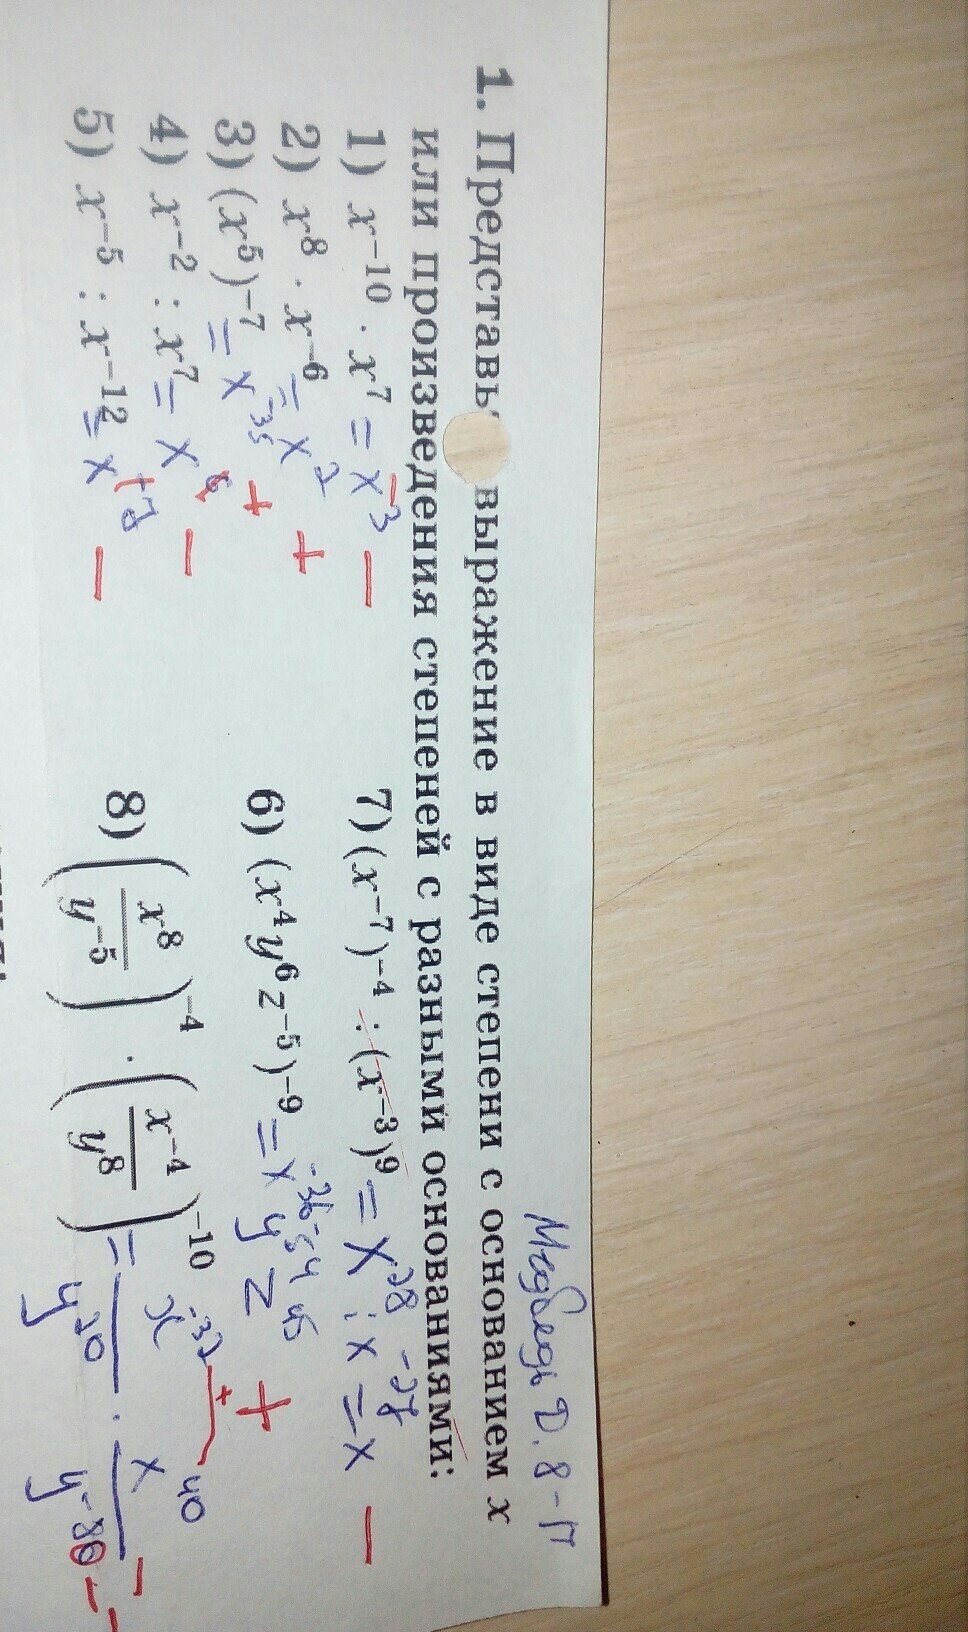 Медведь Д. 8-П
1. Представь выражение в виде степени с основанием x
или произведения степеней с разными основаниями:
1) x⁻¹⁰ · x⁷ = x⁻³ −
2) x⁸ · x⁻⁶ = x² +
3) (x⁵)⁻⁷ = x⁻³⁵ +
4) x⁻² : x⁷ = x −
5) x⁻⁵ : x⁻¹² = x⁺⁷ −
7) (x⁻⁷)⁻⁴ : (x⁻³)⁹ = x²⁸ : x⁻²⁷ = x −
6) (x⁴y⁶z⁻⁵)⁻⁹ = x⁻³⁶ y⁻⁵⁴ z⁴⁵ +
8) (x⁸/y⁻⁵)⁻⁴ · (x⁻⁴/y⁸)⁻¹⁰ = x⁻³²/y²⁰ · x⁴⁰/y⁻⁸⁰ −